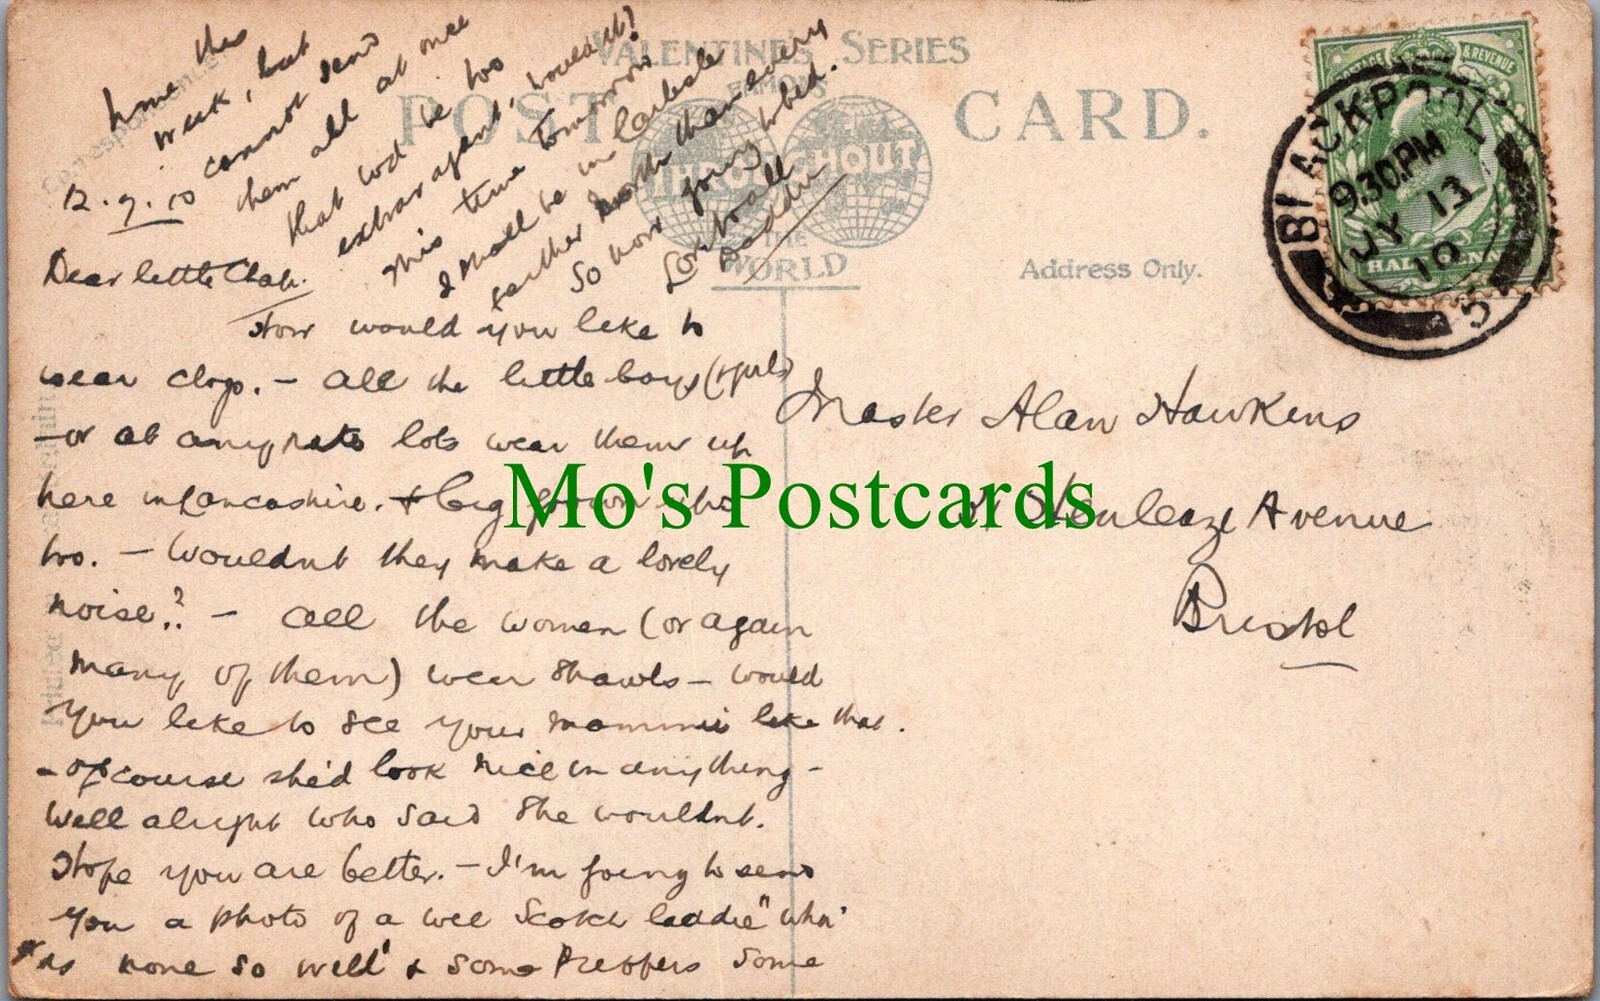 VALENTINE'S SERIES
FAMOUS
POST CARD.
THROUGHOUT
THE
WORLD
Address Only.
BLACKPOOL
9.30PM
JY 13
10
5
POSTAGE & REVENUE
HALF PENNY
12.7.10
Dear little Chap.
How would you like to
wear clogs. - All the little boys (& girls)
- or at any rate lots wear them up
here in Lancashire. & big grown ups
too. - Wouldnt they make a lovely
noise? - All the women (or again
many of them) wear shawls - would
you like to see your mommie like that.
- of course she'd look nice in anything -
Well alright who said she wouldnt.
Hope you are better. - I'm going to send
you a photo of a wee Scotch laddie "wha'
is none so well' & some Preffers some
home this
week, but
cannot send
them all at once
that wd be too
extravagent, wouldnt?
This time tomorrow
I shall be in Carlisle
farther North than ever
So now going to bed.
Love to all
Daddie
Master Alan Hawkins
21 Henleaze Avenue
Bristol
Mo's Postcards